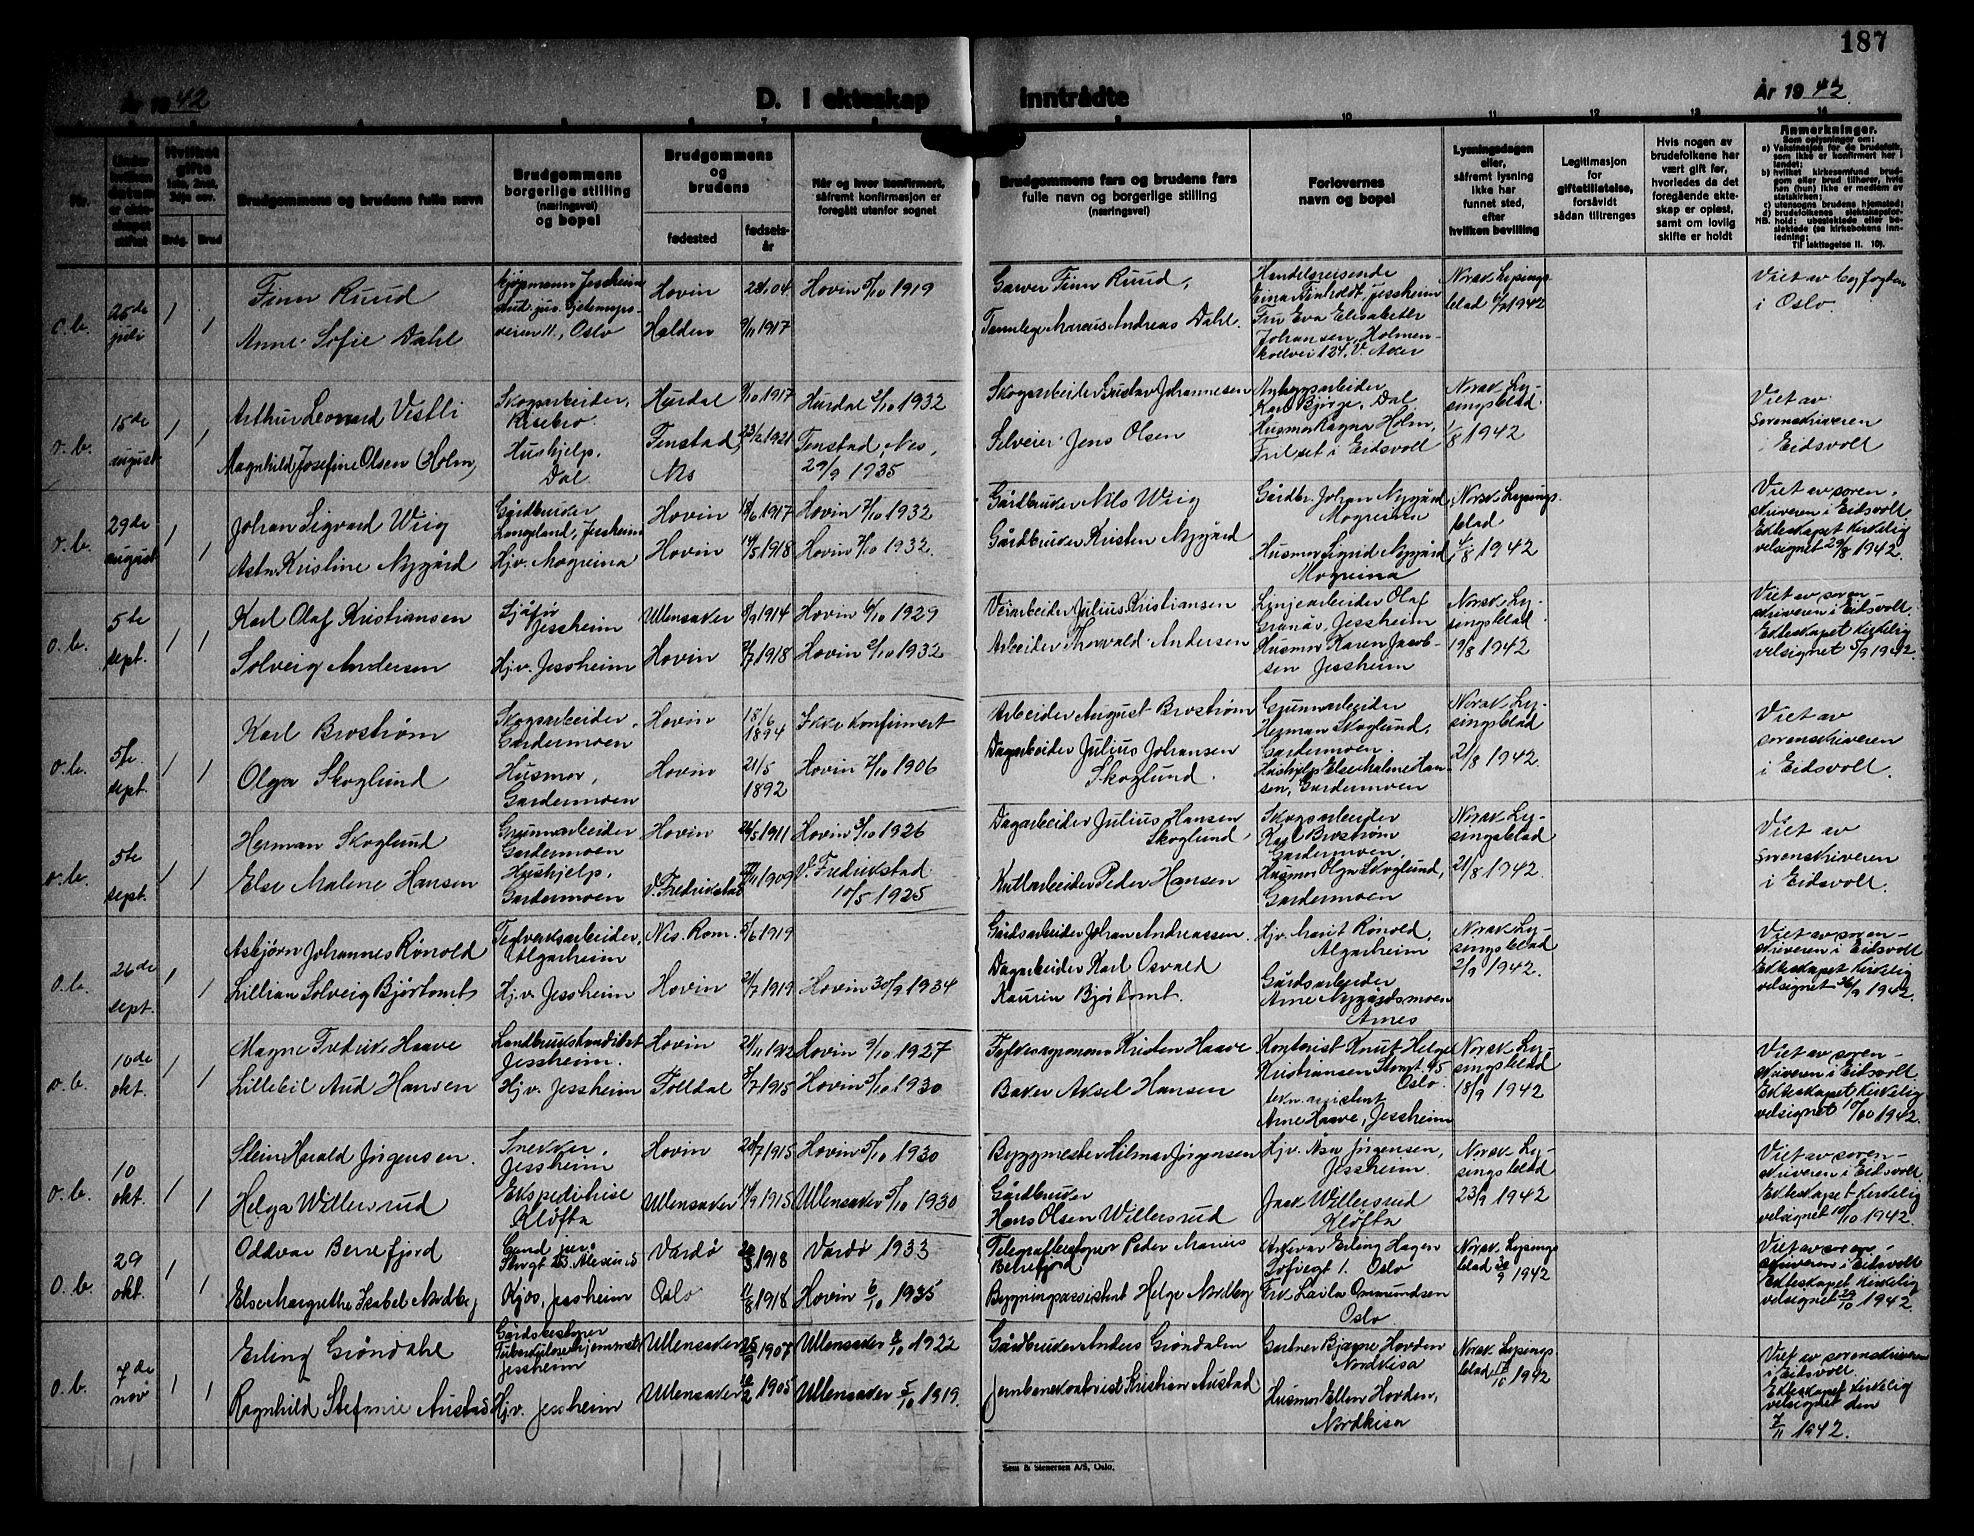 187
År 1942
D. I ekteskap inntrådte
År 1942
Nr.
Hvilket gifte
Brudg.
Brud
Brudgommens og brudens fulle navn
Brudgommens
borgerlige stilling
(næringsvei)
og bopel
Brudgommens
og
brudens
fødested
fødsels-
år
Når og hvor konfirmert,
såfremt konfirmasjon er
foregått utenfor sognet
Brudgommens fars og brudens fars
fulle navn og borgerlige stilling
(næringsvei)
Forlovernes
navn og bopel
Lysningsdagen
eller,
såfremt lysning
ikke har
funnet sted,
efter
hvilken bevilling
Legitimasjon
for
giftetillatelse,
forsåvidt
sådan tiltrenges
Hvis nogen av
brudefolkene har
vært gift før,
hvorledes da det
foregående ekte-
skap er opløst,
samt om lovlig
skifte er holdt
Anmerkninger.
Som oplysninger om:
o.b.
25de
juli
1
1
Finn Ruud
Anne-Sofie Dahl
Kjøpmann Jessheim
veien 11, Oslo
Hovin
Halden
9/11 1917
Hovin 5/10 1919
Garver Finn Ruud,
Tannlege Marcus Andreas Dahl.
Handelsreisende
Jessheim
Fru Eva Elisabeth
Johansen, Holmen-
kollvei 124, V. Aker
Norsk Lysings
blad 1942
Viet av byfogden
i Oslo
o.b.
15de
august
1
1
Arthur Leonard Vestli
Magnhild Josefine Olsen (Holm)
Skogsarbeider,
Risebro.
Hushjelp,
Dal
Hurdal
Fenstad,
Nes
9/10 1917
23/2 1921
Hurdal 2/10 1932
Fenstad, Nes,
29/9 1935
Skogarbeider Gustav Johannesen
Selveier Jens Olsen
Anleggsarbeider
Karl Bjørge, Dal
Husmor Ragna Holm,
Frilset i Eidsvoll
Norsk Ly-
singsblad
1/8 1942
Viet av
Sorenskriveren
i Eidsvoll
o.b.
29de
august
1
1
Johan Sigvard Wiig
Astri Kristine Nygård
Gårdbruker
Langeland, Jessheim
Hjv. Mogreina
Hovin
Hovin
18/6 1917
14/5 1918
Hovin 2/10 1932
Hovin 2/10 1932.
Gårdbruker Nils Wiig
Gårdbruker Kristen Nygård
Gårdbr. Johan Nygård
Mogreina
Husmor Sigrid Nygård
Mogreina
Norsk Lysings
blad
4/8 1942
Viet av soren-
skriveren i Eidsvoll
Ekteskapet kirkelig
velsignet 29/8 1942.
o.b.
5te
sept.
1
1
Karl Olaf Kristiansen
Solveig Andersen
Sjåfør
Jessheim
Hjv. Jessheim
Ullensaker
Hovin
8/9 1914
2/7 1918
Hovin 6/10 1929
Hovin 2/10 1932
Veiarbeider Julius Kristiansen
Arbeider Thorvald Andersen
Linjearbeider Olaf
Granås, Jessheim
Husmor Karen Jacob-
sen Jessheim
Norsk Ly-
singsblad
19/8 1942
Viet av soren-
skriveren i Eidsvoll.
Ekteskapet kirkelig
velsignet 5/9 1942.
o.b.
5te.
sept.
1
1
Karl Brostrøm
Olga Skoglund
Skogsarbeider,
Gardermoen
Husmor,
Gardermoen
Hovin
Hovin
18/6
1894
21/5
1892
Ikke konfirmert
Hovin 7/10 1906
Arbeider August Brostrøm
Dagarbeider Julius Johansen
Skoglund.
Grunnarbeider
Herman Skoglund,
Gardermoen.
Hushjelp Else Malene Han-
sen, Gardermoen
Norsk Ly-
singsblad
21/8 1942.
Viet av
sorenskriveren
i Eidsvoll.
o.b.
5te
sept.
1
1
Herman Skoglund
Else Malene Hansen
Grunnarbeider
Gardermoen
Hushjelp,
Gardermoen
Hovin
V. Fredrikstad
26/5 1911
1909
Hovin 3/10 1926
V. Fredrikstad
10/5 1925
Dagarbeider Julius Hansen
Skoglund
Peder Hansen
Skogsarbeider
Karl Brostrøm
Gardermoen,
Husmor Olga Skoglund,
Gardermoen
Norsk Ly-
singsblad
21/8 1942.
Viet av
Sorenskriveren
i Eidsvoll.
o.b.
26de
sept.
1
1
Asbjørn Johannes Rønold
Lillian Solveig Bjørtomt
Teglverksarbeider,
Algarheim
Hjv. Jessheim
Nes. Rom.
Hovin
5/6 1919
21/7 1919
Hovin 30/9 1934
Gårdsarbeider Johan Andreassen.
Dagarbeider Karl Osvald
Kaurin Bjørtomt.
Hjv. Marit Rønold,
Algarheim
Gårdsarbeider
Arne Nygårdsmoen
Arnes
Norsk Ly-
singsblad
2/9 1942.
Viet av soren-
skriveren i Eidsvoll
Ekteskapet kirkelig
velsignet 26/9 1942.
o.b.
10de
okt.
1
1
Magne Fredrik Haave
Lillebil Aud Hansen
Landbrukskandidat
Jessheim.
Hjv. Jessheim
Hovin
Folldal
21/11 1912
5/7 1915
Hovin 9/10 1927
Hovin 5/10 1930
Fylkesagronom Kristen Haave
Baker Aksel Hansen
Kontorist Knut Helge
Kristiansen
Oslo.
tekn. assistent
Arne Haave, Jessheim
Norsk Ly-
singsblad
18/9 1942
Viet av soren-
skriveren i Eidsvoll
Ekteskapet kirkelig
velsignet 10/10 1942.
o.b.
10
okt.
1
1
Stein Harald Jørgensen.
Helga Willersrud
Snekker,
Jessheim
Ekspeditrise
Kløfta
Hovin
Ullensaker
20/7 1915
14/9 1915
Hovin 5/10 1930
Ullensaker 5/10 1930
Byggmester Hilmar Jørgensen
Gårdbruker
Hans Olsen Willersrud
Hjv. Åse Jørgensen,
Jessheim.
Willersrud
Kløfta
Norsk Ly-
singsblad
23/9 1942
Viet av soren-
skriveren i Eidsvoll
Ekteskapet kirkelig
velsignet 10/10 1942.
o.b.
29
okt.
1
1
Oddvar Berrefjord
Else Margrethe Isabel Nordby
Cand. jur.
Ålesund
Kjos, Jessheim
Vardø
Oslo
1918
1918
Vardø 1933
Hovin 6/10 1935
Telegrafbestyrer Peder Marius
Berrefjord
Bygningsassistent Helge Nordby
Arkivar Erling Hagen
Sofiesgt 1. Oslo
Frk Laila Osmundsen
Oslo.
Norsk Lysings
blad 30/9 1942
Viet av soren-
skriveren i Eidsvoll
Ekteskapet kirkelig
velsignet 29/10 1942.
o.b.
7de
nov
1
1
Erling Grøndahl
Ragnhild Stefanie Austad
Gårdsbestyrer
Tuberkulosehjemmet
Jessheim
Hjv. Jessheim
Ullensaker
Ullensaker
25/9 1907
1905
Ullensaker 8/10 1922
Ullensaker 5/10 1919.
Gårdbruker Anders Grøndalen
Jernbanekontorist Kristian Austad
Gartner Bjarne Hovden
Nordkisa
Husmor Ellen Hovden,
Nordkisa
Norsk Lysings
blad 1942
Viet av sorenskriveren
i Eidsvoll.
Ekteskapet kirkelig
velsignet den
7/11 1942.
Sem & Stenersen A/S, Oslo.